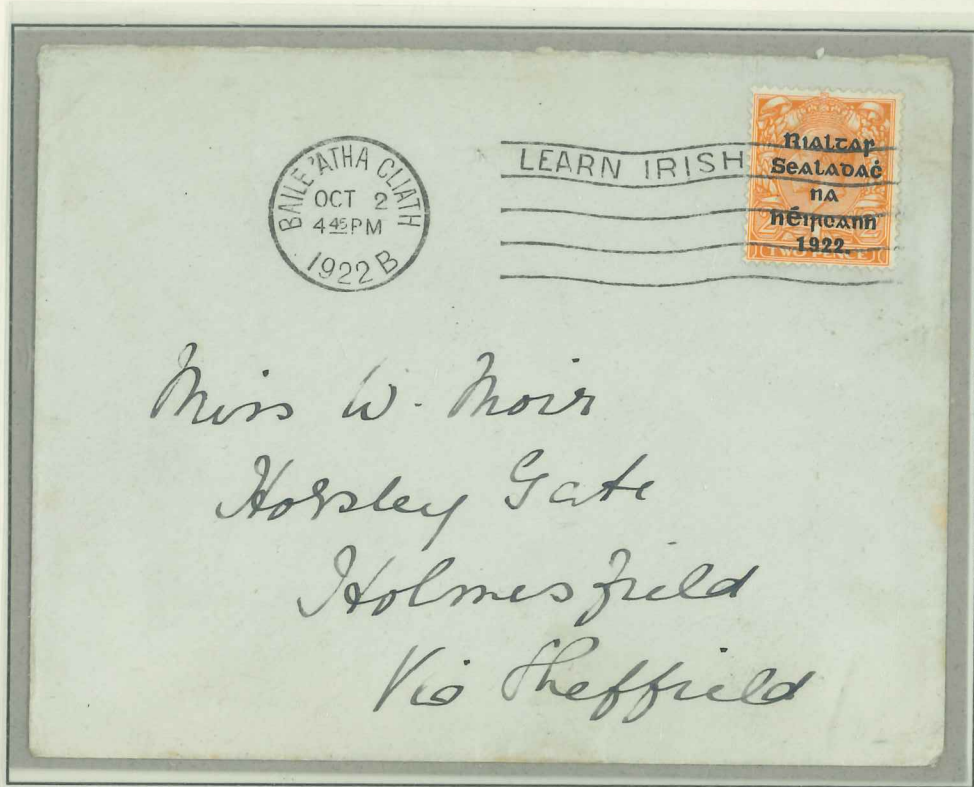 BAILE 'ATHA CLIATH
OCT 2
4 45 PM
1922 B
LEARN IRISH
Rialtar
Sealadaċ
na
hÉireann
1922.
TWO PENCE
Miss W. Moir
Horsley Gate
Holmesfield
Via Sheffield